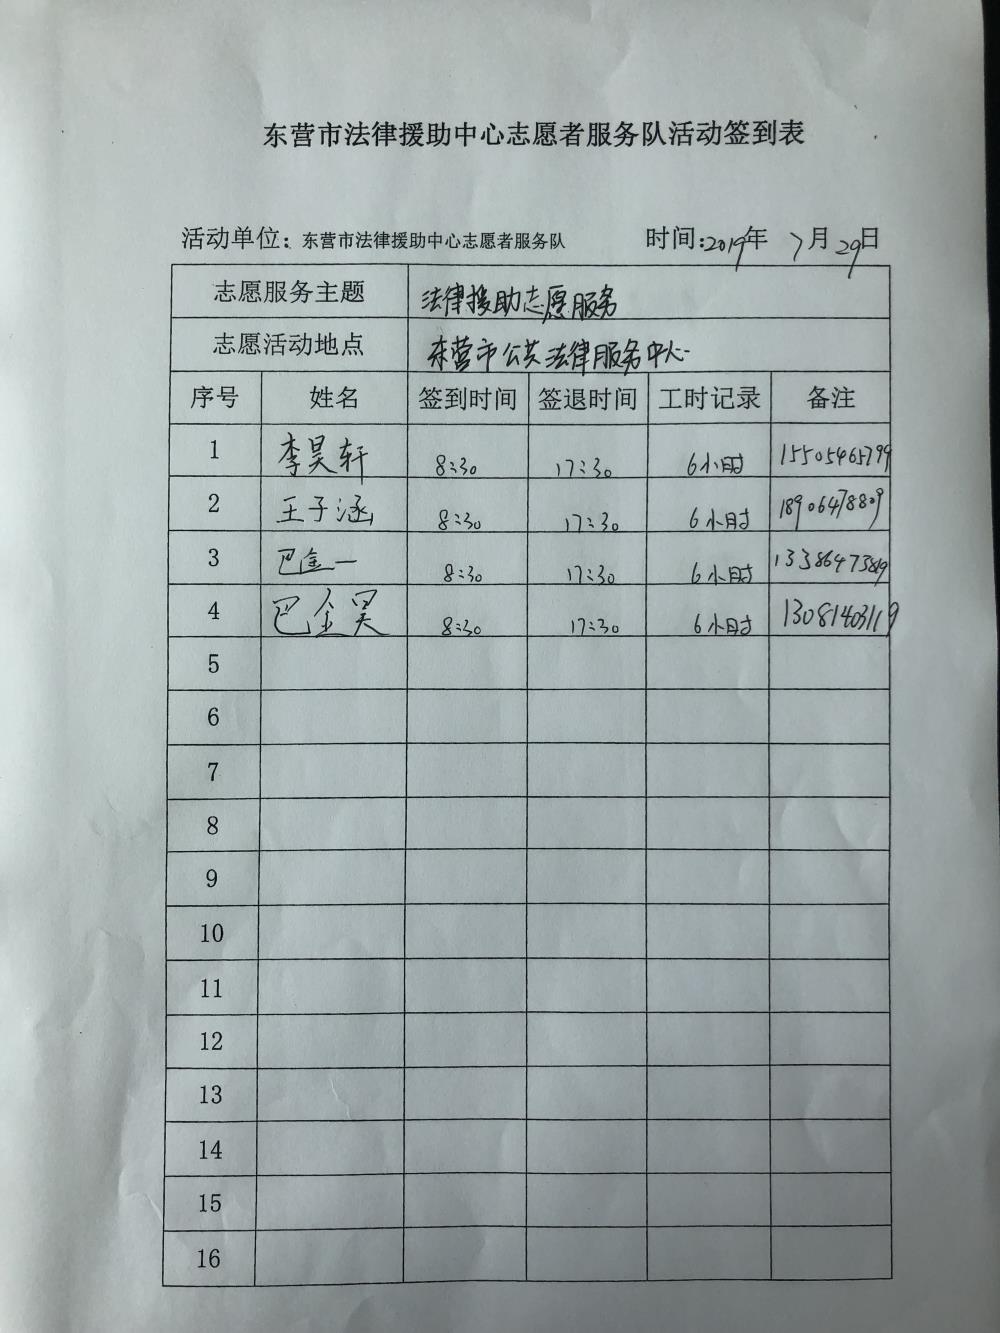 东营市法律援助中心志愿者服务队活动签到表
活动单位：东营市法律援助中心志愿者服务队 时间：2019年 7月29日
志愿服务主题 法律援助志愿服务
志愿活动地点 东营市公共法律服务中心
序号 姓名 签到时间 签退时间 工时记录 备注
1 李昊轩 8:30 17:30 6小时 15505465799
2 王子涵 8:30 17:30 6小时 18906478809
3 巴金一 8:30 17:30 6小时
4 巴金昊 8:30 17:30 6小时 13081403119
5
6
7
8
9
10
11
12
13
14
15
16